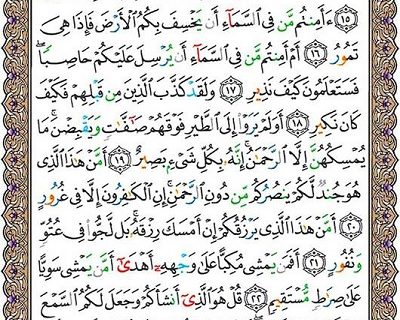 ﴿١٥﴾ ءَأَمِنتُم مَّن فِى ٱلسَّمَآءِ أَن يَخْسِفَ بِكُمُ ٱلْأَرْضَ فَإِذَا هِىَ
تَمُورُ ﴿١٦﴾ أَمْ أَمِنتُم مَّن فِى ٱلسَّمَآءِ أَن يُرْسِلَ عَلَيْكُمْ حَاصِبًا ۖ
فَسَتَعْلَمُونَ كَيْفَ نَذِيرِ ﴿١٧﴾ وَلَقَدْ كَذَّبَ ٱلَّذِينَ مِن قَبْلِهِمْ فَكَيْفَ
كَانَ نَكِيرِ ﴿١٨﴾ أَوَلَمْ يَرَوْا۟ إِلَى ٱلطَّيْرِ فَوْقَهُمْ صَٰٓفَّٰتٍ وَيَقْبِضْنَ ۚ مَا
يُمْسِكُهُنَّ إِلَّا ٱلرَّحْمَٰنُ ۚ إِنَّهُۥ بِكُلِّ شَىْءٍۭ بَصِيرٌ ﴿١٩﴾ أَمَّنْ هَٰذَا ٱلَّذِى
هُوَ جُندٌ لَّكُمْ يَنصُرُكُم مِّن دُونِ ٱلرَّحْمَٰنِ ۚ إِنِ ٱلْكَٰفِرُونَ إِلَّا فِى غُرُورٍ
﴿٢٠﴾ أَمَّنْ هَٰذَا ٱلَّذِى يَرْزُقُكُمْ إِنْ أَمْسَكَ رِزْقَهُۥ ۚ بَل لَّجُّوا۟ فِى عُتُوٍّ
وَنُفُورٍ ﴿٢١﴾ أَفَمَن يَمْشِى مُكِبًّا عَلَىٰ وَجْهِهِۦٓ أَهْدَىٰٓ أَمَّن يَمْشِى سَوِيًّا
عَلَىٰ صِرَٰطٍ مُّسْتَقِيمٍ ﴿٢٢﴾ قُلْ هُوَ ٱلَّذِىٓ أَنشَأَكُمْ وَجَعَلَ لَكُمُ ٱلسَّمْعَ